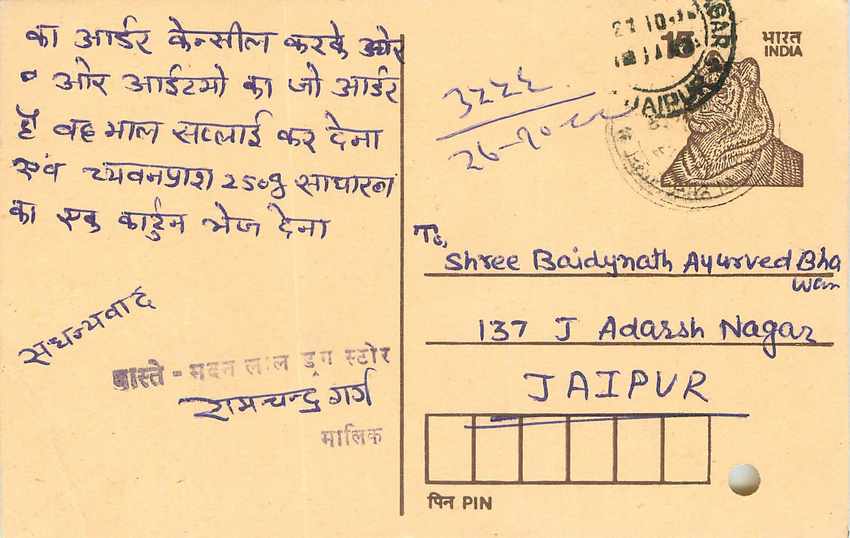 का आर्डर केन्सील करके और
व ओर आईटमो का जो आर्डर
है वह माल सप्लाई कर देना
एवं च्यवनप्राश 250g साधारण
का एक कार्टुन भेज देना
सधन्यवाद
वास्ते - मदन लाल ड्रग स्टोर
रामचन्द्र गर्ग
मालिक
27 10
15
भारत
INDIA
JAIPUR
To,
Shree Baidynath Ayurved Bha
wan
137 J Adarsh Nagar
JAIPUR
पिन PIN